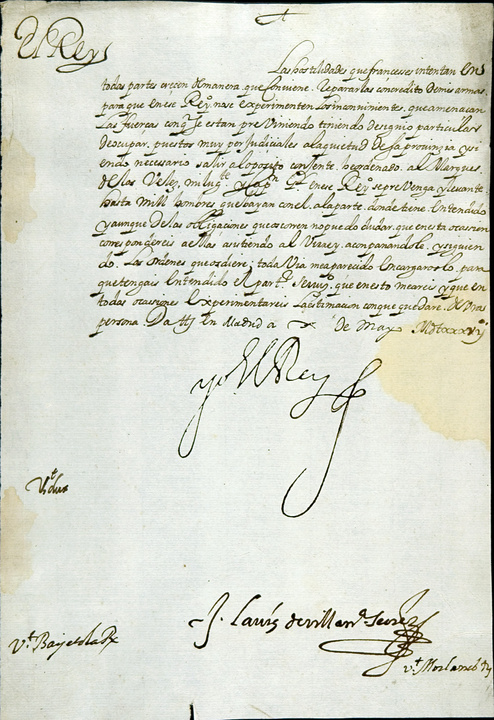 El Rey
Las hostilidades que franceses intentan en
todas partes crecen de manera que conviene Repararlas con credito de mis armas
para que en ese Reyno no se experimenten los inconvinientes, que amenaçan
las fuerças conq se estan previniendo teniendo designio particular
de ocupar puestos muy perjudiciales a la quietud desa provinzia y si
endo necesario salir al oposito con gente, he ordenado al Marques
de los Velez mi lugte y Capn Gl en ese Reyno prevenga y levante
hasta mill hombres que vayan con el a la parte donde tiene entendido
y aunque de las obligaciones que coren no puedo dudar que en esta ocasion
corespondereis a ellas asistiendo al Virrey aconpañandole, y siguien
do las ordenes que os diere; toda via me a parecido encargaroslo, para
que tengais entendido el partr servo que en esto me areis y que en
todas ocasiones experimentareis la estimacion con que quedare de vras
persona. Datt en Madrid a x de Mayo MDCxxxvij
yo El Rey
Vt Bayetola Rs
J. Laurs de Villanva Secres